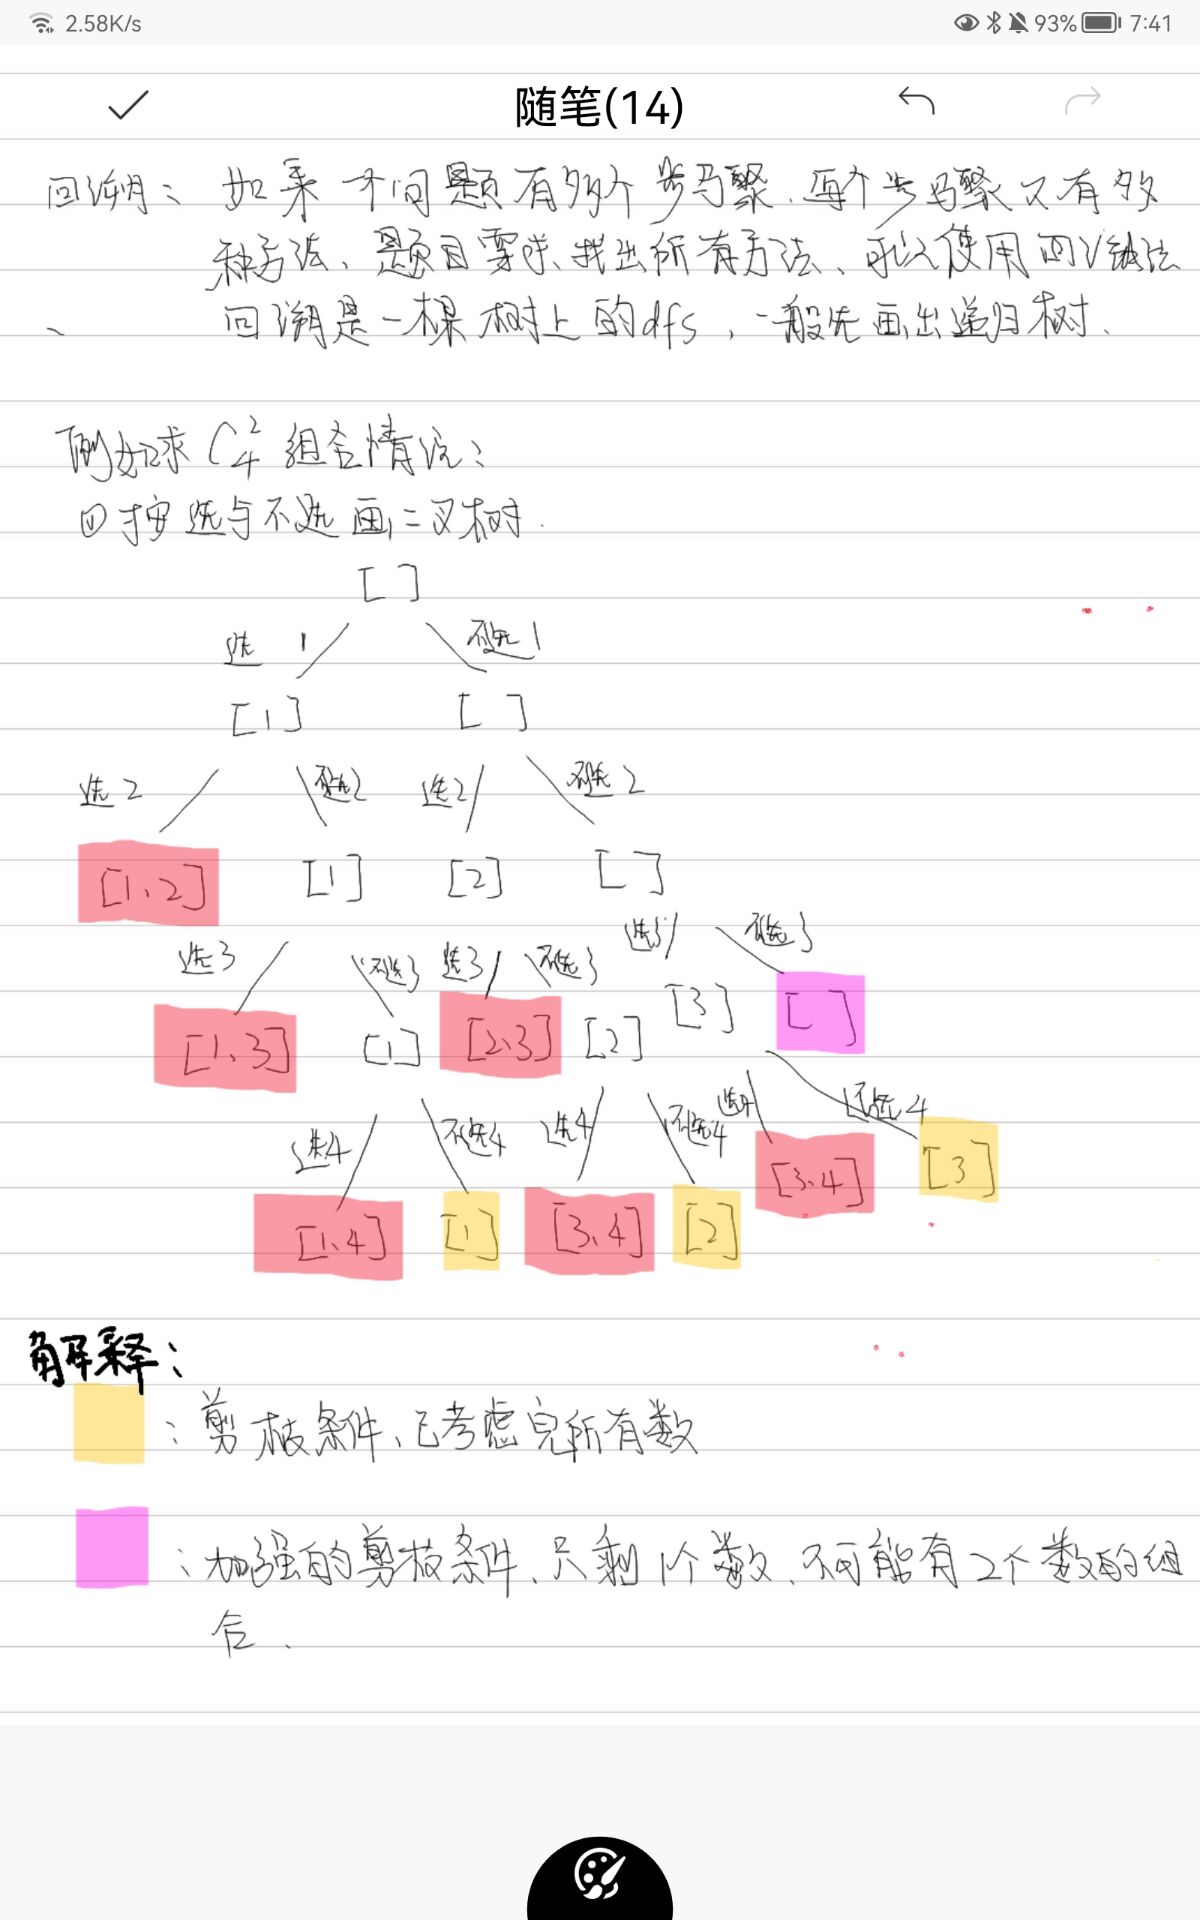 2.58K/s 93% 7:41
随笔(14)
回溯: 如果一个问题有多个步骤,每个步骤又有多
种方法、题目要求找出所有方法、可以使用回溯法
回溯是一棵树上的dfs,一般先画出递归树.
例如求C₄² 组合情况:
①按选与不选画二叉树.
[ ]
选1 不选1
[1] [ ]
选2 不选2 选2 不选2
[1、2] [1] [2] [ ]
选3 不选3 选3 不选3 选3 不选3
[1、3] [1] [2、3] [2] [3] [ ]
选4 不选4 选4 不选4 选4 不选4
[1、4] [1] [3、4] [2] [3、4] [3]
解释:
:剪枝条件、已考虑完所有数
:加强的剪枝条件、只剩1个数、不可能有2个数的组
合.